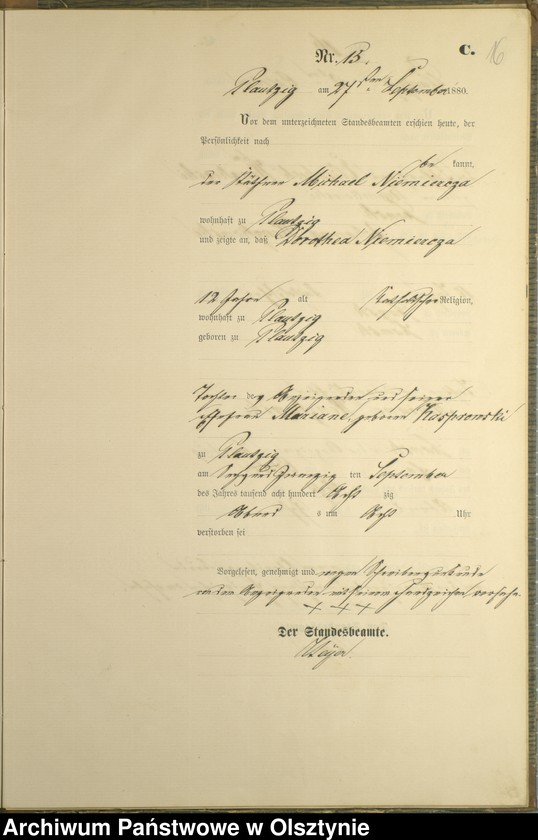 C. 16
Nr. 13.
Plautzig am 27ten September 1880.
Vor dem unterzeichneten Standesbeamten erschien heute, der
Persönlichkeit nach
be kannt,
der Käthner Michael Niemierza
wohnhaft zu Plautzig
und zeigte an, daß Dorothea Niemierza
12 Jahre alt katholischer Religion,
wohnhaft zu Plautzig
geboren zu Plautzig
Tochter des Anzeigenden und seiner
Ehefrau Mariane, geborene Kasprowski
zu Plautzig
am sechsundzwanzig ten September
des Jahres tausend acht hundert acht zig
Abend s um acht Uhr
verstorben sei
Vorgelesen, genehmigt und wegen Schreibensunkunde
von dem Anzeigenden mit seinem Handzeichen versehen.
+ + +
Der Standesbeamte.
Archiwum Państwowe w Olsztynie